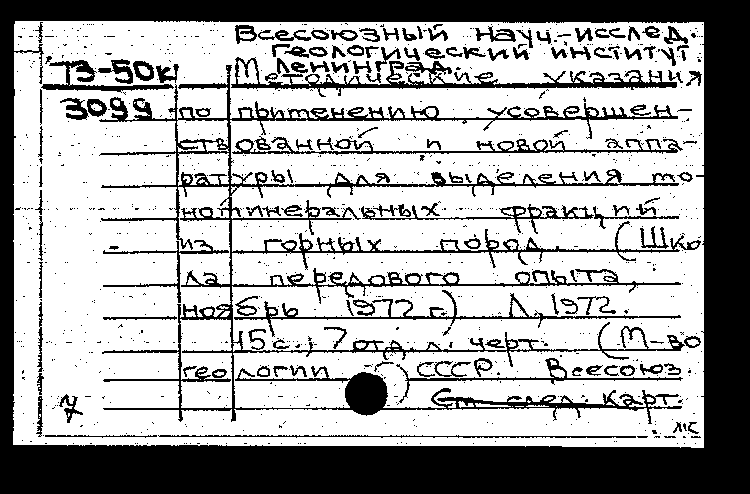 Всесоюзный науч.-исслед.
Геологический институт
Ленинград.
Т3-50к
3099
Методические указания
по применению усовершен-
ствованной и новой аппа-
ратуры для выделения мо-
номинеральных фракций
из горных пород. (Шко-
ла передового опыта,
ноябрь 1972 г.) Л., 1972.
15 с.; 7 отд. л. черт. (М-во
геологии СССР. Всесоюз.
См. след. карт.